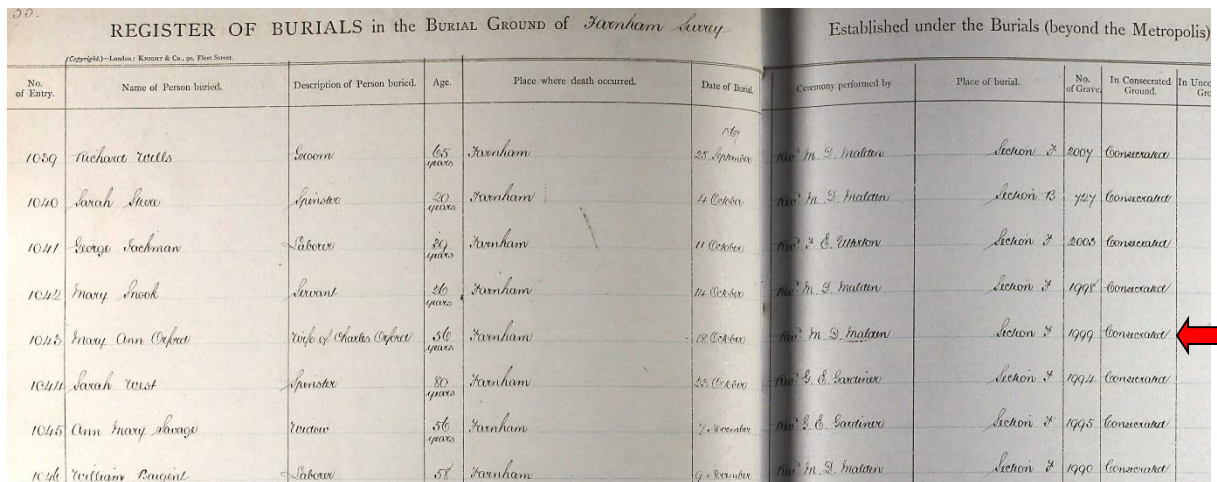 33.
REGISTER OF BURIALS in the BURIAL GROUND of Farnham Surrey Established under the Burials (beyond the Metropolis)
(Copyright.)—London: KNIGHT & Co., 90, Fleet Street.
No. of Entry. Name of Person buried. Description of Person buried. Age. Place where death occurred. Date of Burial Ceremony performed by Place of burial. No. of Grave. In Consecrated Ground. In Unco Gro
1039 Richard Wells Groom 65 years Farnham 25 September Revd M. D. Malden Section F 2004 Consecrated
1040 Sarah 20 years Farnham 4 October Revd M. D. Malden Section B 727 Consecrated
1041 George Jachman Laborer 39 years Farnham 11 October Revd Section F 2003 Consecrated
1042 Mary Snook Servant 26 years Farnham 14 October Revd M. D. Malden Section F 1998 Consecrated
1043 Mary Ann Orford Wife of Charles Orford 56 years Farnham 18 October Revd M. D. Malden Section F 1999 Consecrated
1044 Sarah West Spinster 80 years Farnham 23 October Revd G. E. Gardiner Section F 1994 Consecrated
1045 Ann Mary Savage Widow 56 years Farnham 7 November Revd G. E. Gardiner Section F 1995 Consecrated
1046 William Baigent Laborer 58 Farnham 9 November Revd M. D. Malden Section F 1990 Consecrated